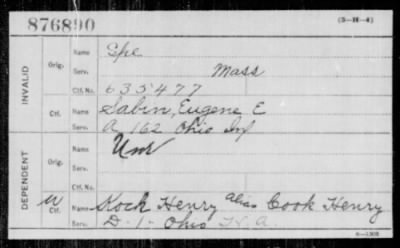 876890
(3-H-4)
INVALID
Orig. Name Spe
Serv. Mass
Ctf. No. 635477
Ctf. Name Sabin, Eugene E
Serv. A, 162 Ohio Inf
DEPENDENT
Orig. Name
Serv.
Ctf. No.
W Ctf. Name Koch Henry alias Cook Henry
Serv. D-1- Ohio H.A.
6-1308